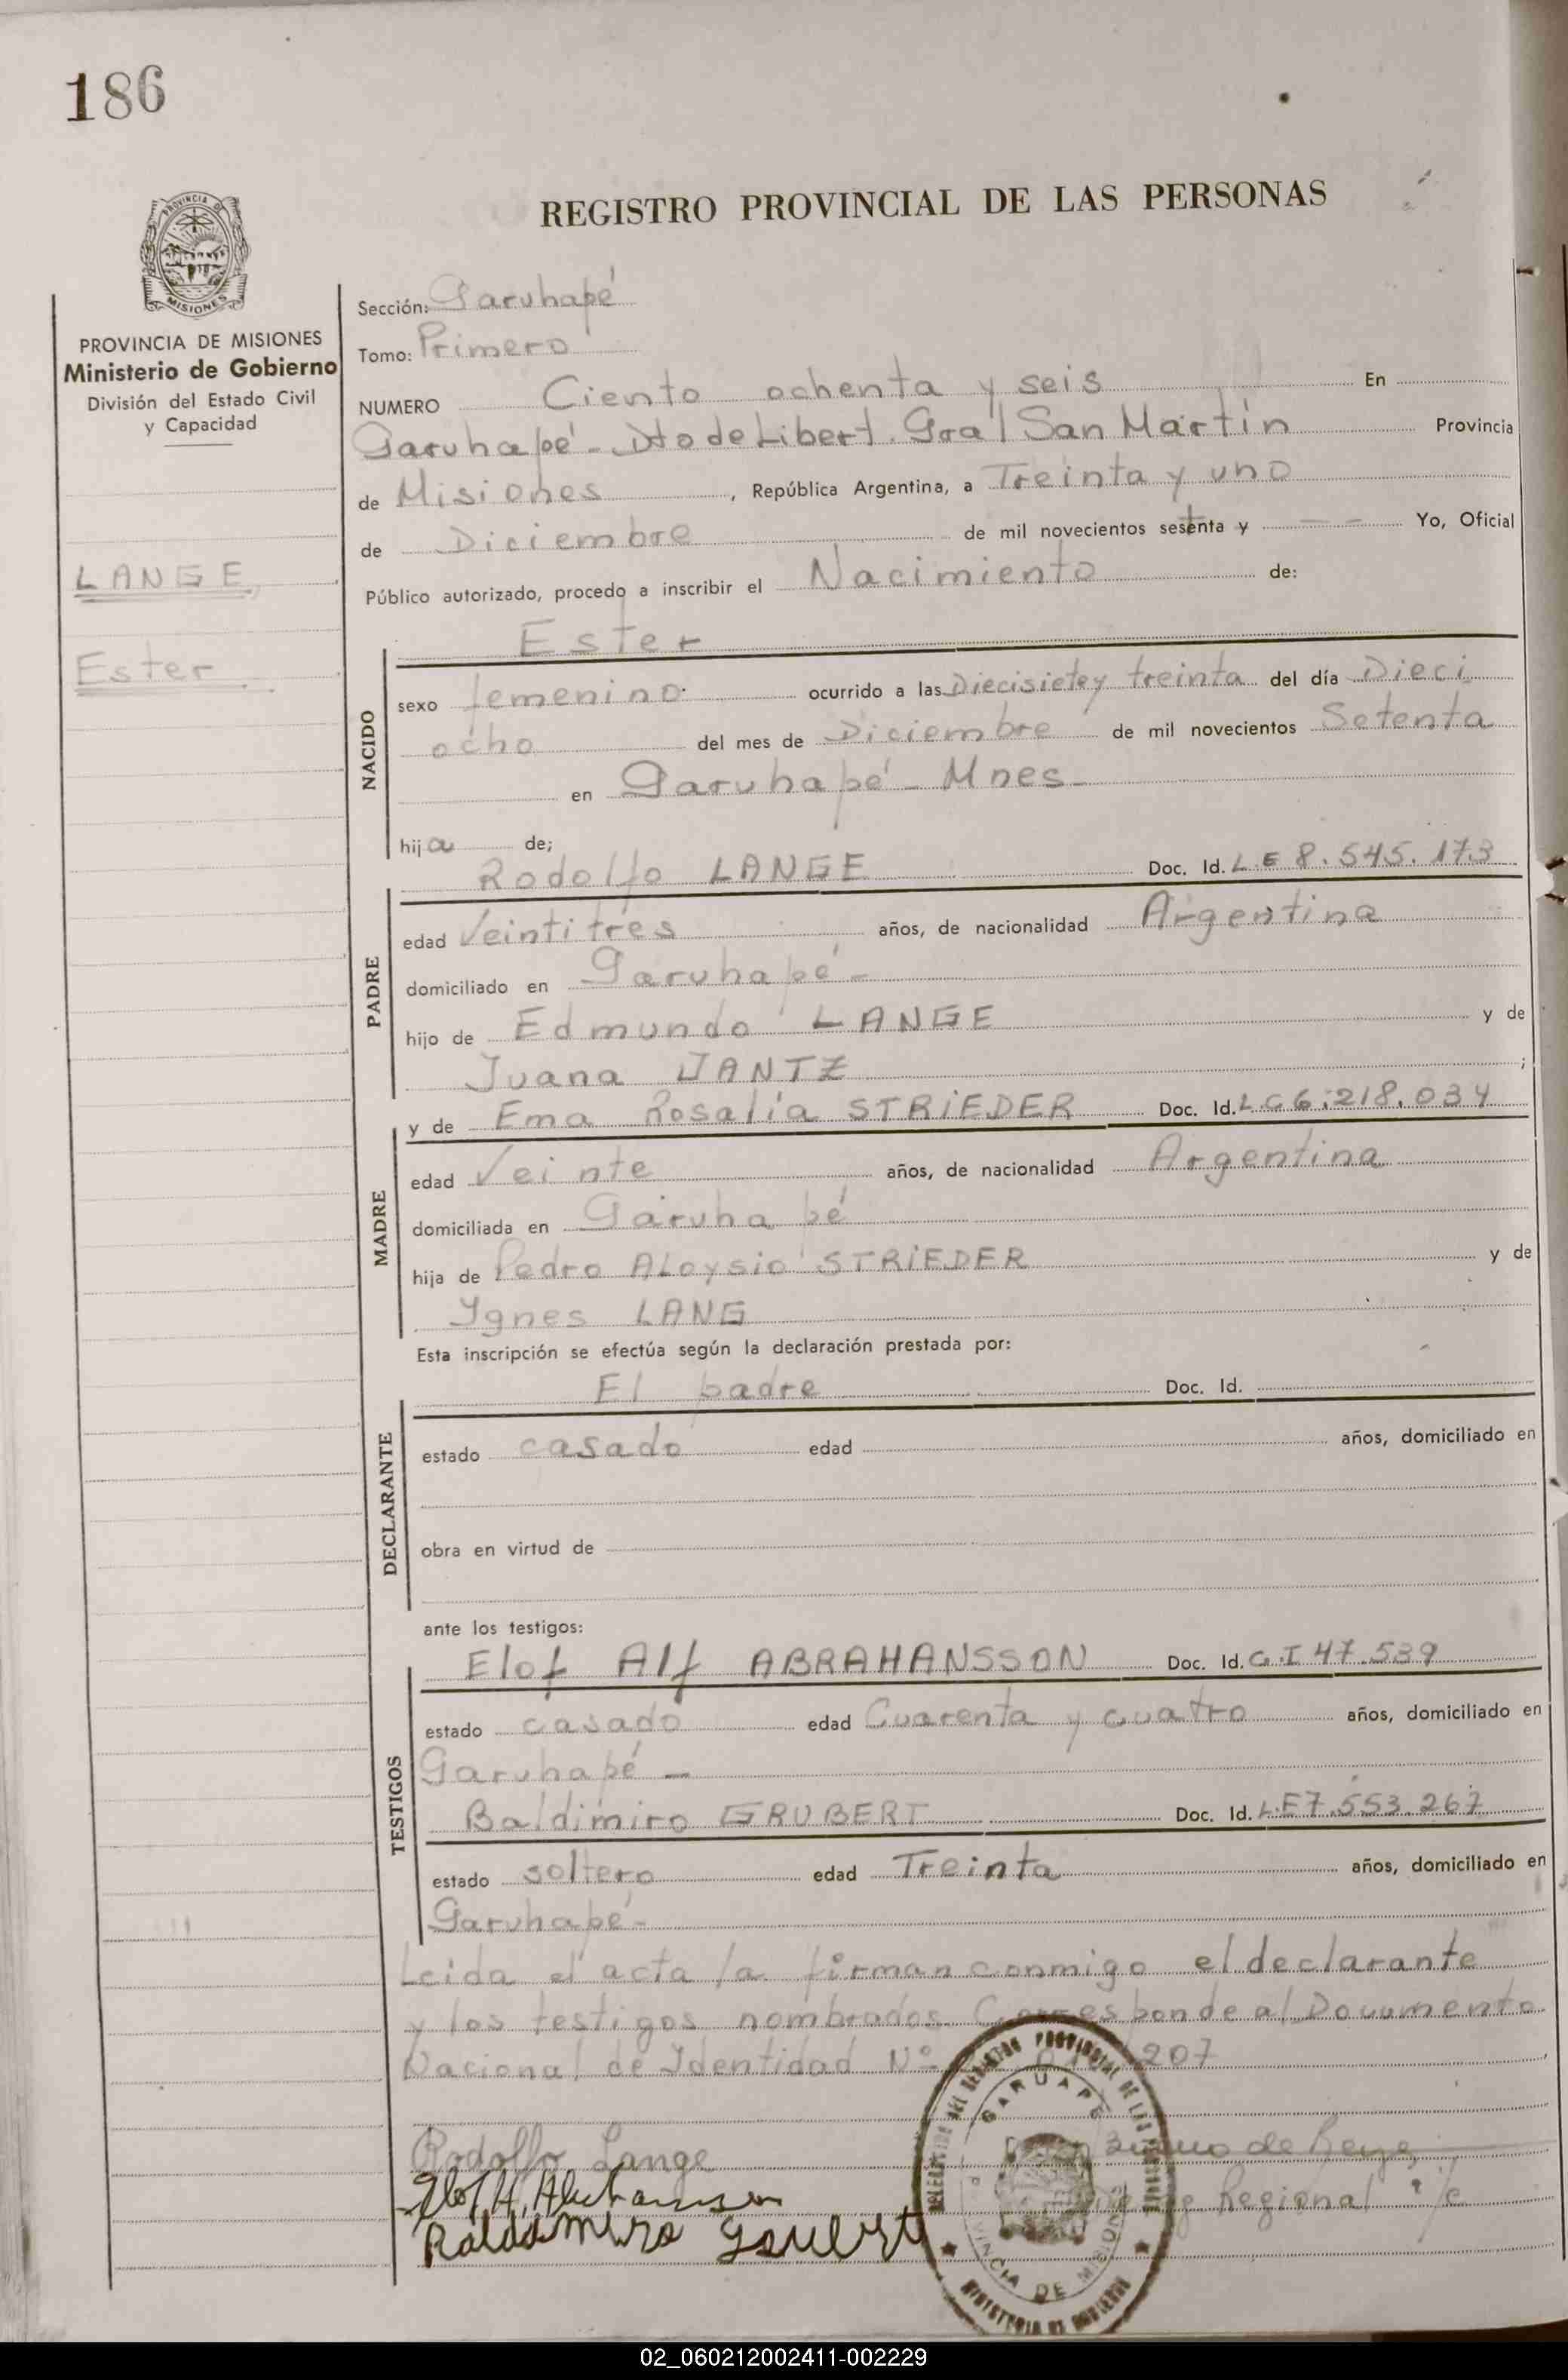 186
PROVINCIA DE
MISIONES
REGISTRO PROVINCIAL DE LAS PERSONAS
PROVINCIA DE MISIONES
Ministerio de Gobierno
División del Estado Civil
y Capacidad
LANGE,
Ester
Sección: Garuhapé
Tomo: Primero
NUMERO Ciento ochenta y seis En
Garuhapé - Dto de Libert. Gral San Martín Provincia
de Misiones, República Argentina, a Treinta y uno
de Diciembre de mil novecientos setenta y - - Yo, Oficial
Público autorizado, procedo a inscribir el Nacimiento de:
Ester
NACIDO
sexo femenino ocurrido a las Diecisiete y treinta del día Dieci
ocho del mes de Diciembre de mil novecientos Setenta
en Garuhapé - Mnes -
hija de;
Rodolfo LANGE Doc. Id. L.E 8.545.173
PADRE
edad Veintitres años, de nacionalidad Argentina
domiciliado en Garuhapé -
hijo de Edmundo LANGE y de
Juana JANTZ ;
y de Ema Rosalía STRiEDER Doc. Id. L.C 6.218.034
MADRE
edad Veinte años, de nacionalidad Argentina
domiciliada en Garuhapé
hija de Pedro ALoysio STRiEDER y de
Ygnes LANG
Esta inscripción se efectúa según la declaración prestada por:
El padre Doc. Id.
DECLARANTE
estado casado edad años, domiciliado en
obra en virtud de
ante los testigos:
Elof Alf ABRAHANSSON Doc. Id. C.I 47.539
TESTIGOS
estado casado edad Cuarenta y cuatro años, domiciliado en
Garuhapé -
Baldimiro GRUBERT Doc. Id. L.E 7.553.267
estado soltero edad Treinta años, domiciliado en
Garuhapé -
Leida el acta la firman conmigo el declarante
y los testigos nombrados. Corresponde al Documento
Nacional de Identidad Nº 207
Rodolfo Lange
de
Regional
GARUAPE
PROVINCIA DE MISIONES
MINISTERIO DE GOBIERNO
02_060212002411-002229